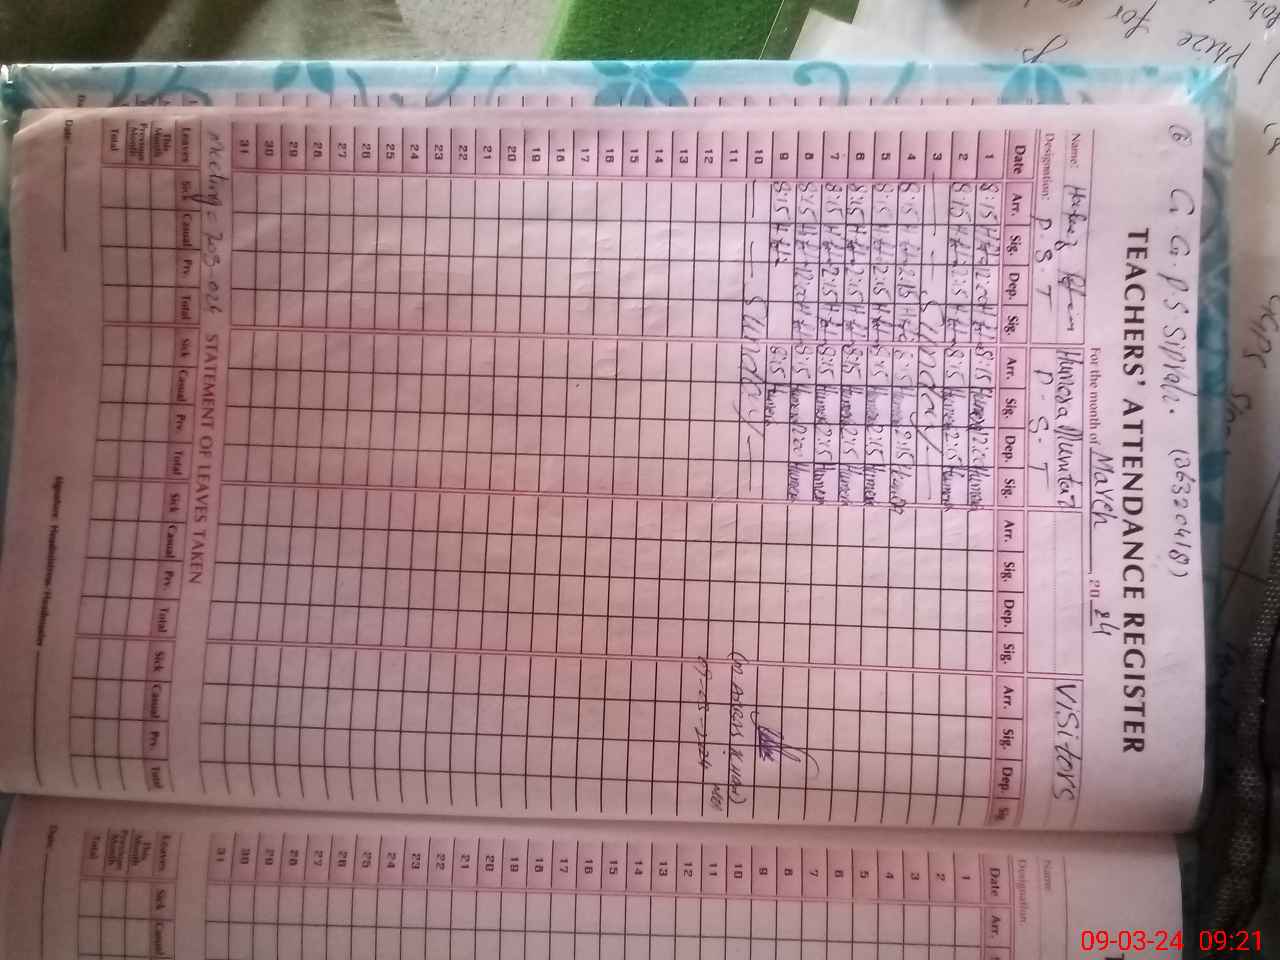 G G P S Sippali. (36320418)
TEACHERS' ATTENDANCE REGISTER
For the month of March 2024
Name: Humera Mumtaz VISITORS
Designation: P.S.T P.S.T
Date Arr. Sig. Dep. Sig. Arr. Sig. Dep. Sig. Arr. Sig. Dep. Sig. Arr. Sig. Dep. Sig.
1 8:15 12:00 8:15 Humera 12:00 Humera
2 8:15 2:15 8:15 Humera 2:15 Humera
3 — Sunday —
4 8:15 2:15 8:15 Humera 2:15 Humera
5 8:15 2:15 8:15 Humera 2:15 Humera
6 8:15 2:15 8:15 Humera 2:15 Humera
7 8:15 2:15 8:15 Humera 2:15 Humera
8 8:15 12:00 8:15 Humera 12:00 Humera
9 8:15 8:15 Humera
10 — — Sunday —
11
12
13
14
15
16
17
18
19
20
21
22
23
24
25
26
27
28
29
30
31
STATEMENT OF LEAVES TAKEN
Leaves Sick Casual Prv. Total Sick Casual Prv. Total Sick Casual Prv. Total Sick Casual Prv. Total
This Month
Previous Month
Total
Date: Signature Headmistress/Headmaster
Name
Designation
Date Arr.
1
2
3
4
5
6
7
8
9
10
11
12
13
14
15
16
17
18
19
20
21
22
23
24
25
26
27
28
29
30
31
Leaves Sick Casual
This Month
Previous Month
Total
Date:
09-03-24 09:21